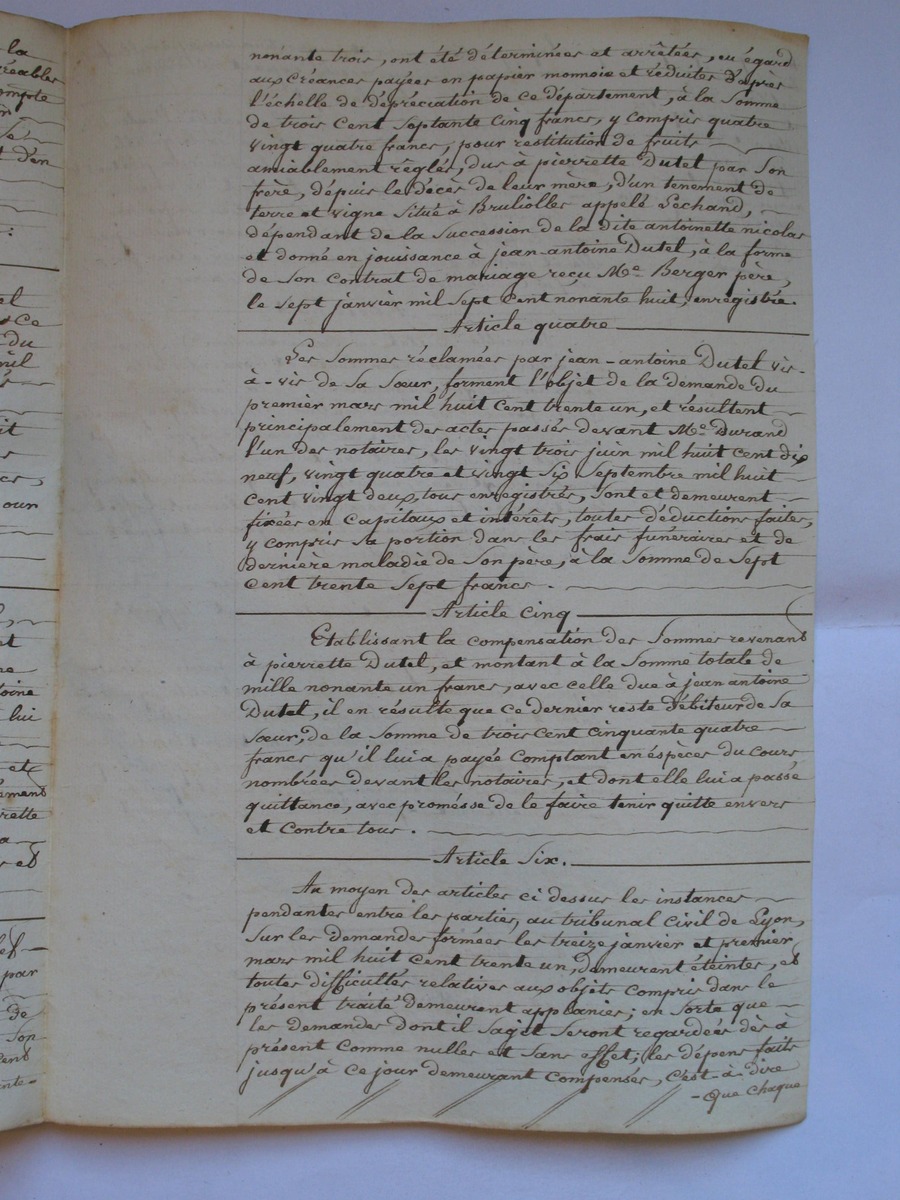 la
réables
compte
Se
t d'en
:
el
du
mil
it
ces,
our
et
ne
toine
lui
et
ement
rette
a
s et
par
de
Son
cent
nonante trois, ont été déterminées et arrêtées, eu égard
aux créances payées en papier monnoie et réduites d'après
l'échelle de dépréciation de ce département, à la Somme
de trois Cent Septante Cinq francs, y compris quatre
vingt quatre francs, pour restitution de fruits
amiablement réglés, dus à pierrette Dutel par Son
frère, dépuis le décès de leur mère, d'un tenement de
terre et vigne Situé à Bruliolles appelé Pechand,
dépendant de la Succession de la dite antoinette nicolas
et donné en jouissance à jean-antoine Dutel, à la forme
de Son Contrat de mariage reçu Me. Berger père,
le Sept janvier mil Sept Cent nonante huit, enregistré.
Article quatre
Les Sommes réclamées par jean-antoine Dutel vis-
à-vis de Sa Sœur, forment l'objet de la demande du
premier mars mil huit Cent trente un, et résultent
principalement des actes passés devant Me. Durand
l'un des notaires, les vingt trois juin mil huit Cent dix
neuf, vingt quatre et vingt Six Septembre mil huit
Cent vingt deux, tous enregistrés, Sont et demeurent
fixées en Capitaux et intérêts, toutes déductions faites,
y compris Sa portion dans les frais funeraires et de
dernière maladie de Son père, à la Somme de Sept
Cent trente Sept francs.
Article Cinq
Etablissant la compensation des Sommes revenant
à pierrette Dutel, et montant à la Somme totale de
mille nonante un francs, avec celle due à jean antoine
Dutel, il en résulte que ce dernier reste débiteur de Sa
Sœur, de la Somme de trois Cent Cinquante quatre
francs qu'il lui a payée Comptant en éspèces du Cours
nombrées devant les notaires, et dont elle lui a passé
quittance, avec promésse de le faire tenir quitte envers
et Contre tous.
Article Six.
Au moyen des articles ci dessus les instances
pendantes entre les parties, au tribunal Civil de Lyon,
Sur les demandes formées les treize janvier et premier
mars mil huit Cent trente un, demeurent éteintes, et
toutes difficultés relatives aux objets Compris dans le
présent traité demeurent applanies; en Sorte que
les demandes dont il Sagit Seront regardées dès à
présent Comme nulles et Sans effet; les dépens faits
jusqu'à ce jour demeurant Compensés, C'est-à-dire
- Que Chaque